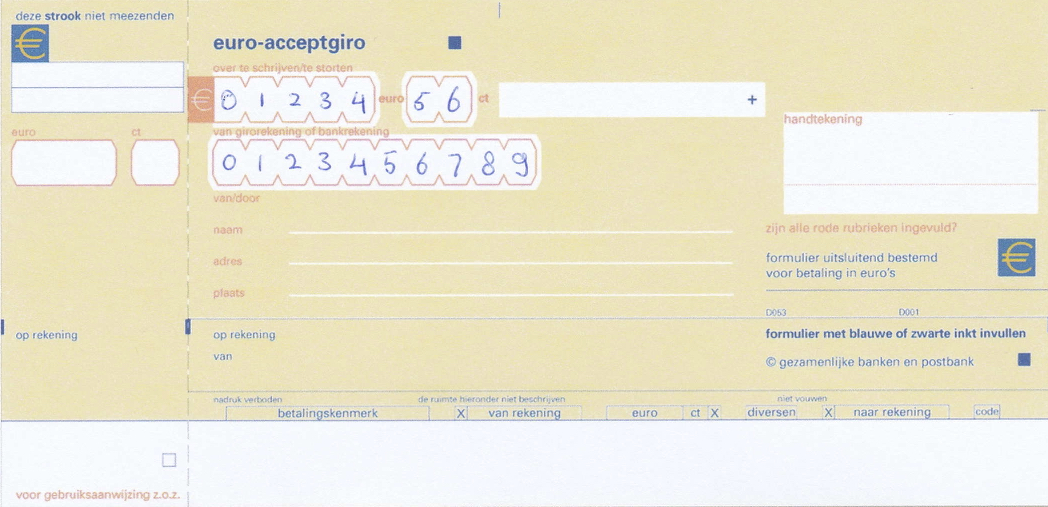 deze strook niet meezenden
€
euro ct
op rekening
voor gebruiksaanwijzing z.o.z.
euro-acceptgiro
over te schrijven/te storten
€ 0 1 2 3 4 euro 5 6 ct +
van girorekening of bankrekening
0 1 2 3 4 5 6 7 8 9
van/door
naam
adres
plaats
handtekening
zijn alle rode rubrieken ingevuld?
formulier uitsluitend bestemd
voor betaling in euro's
€
D053 D001
op rekening
van
formulier met blauwe of zwarte inkt invullen
© gezamenlijke banken en postbank
nadruk verboden de ruimte hieronder niet beschrijven niet vouwen
betalingskenmerk X van rekening euro ct X diversen X naar rekening code